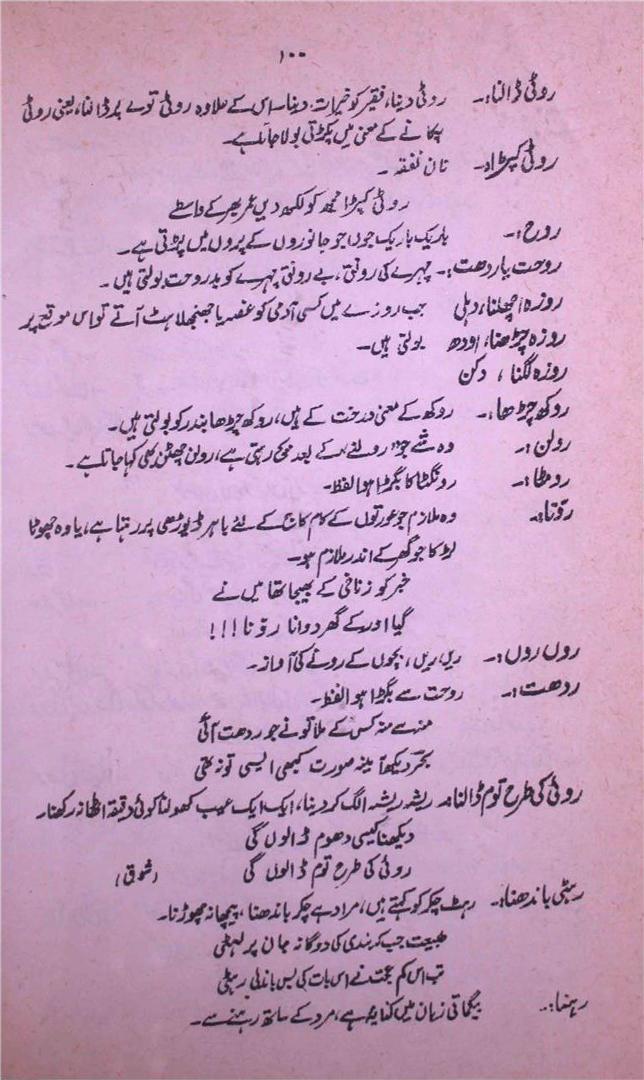 ۱۰۰
روٹی ڈالنا:۔ روٹی دینا، فقیر کو خیرات دینا۔ اس کے علاوہ روٹی توے پر ڈالنا، یعنی روٹی
پکانے کے معنی میں پکڑتی بولا جاتا ہے۔
روٹی کپڑا:۔ نان نفقہ۔
روٹی کپڑا مجھ کو لکھ دیں عمر بھر کے واسطے
روح:۔ باریک باریک جوں جو جانوروں کے پروں میں پڑتی ہے۔
روحت یا ردھت:۔ چہرے کی رونق، بے رونق چہرے کو بدروحت بولتی ہیں۔
روزہ اچھلنا، دہلی جب روزے میں کسی آدمی کو غصہ یا جھنجلاہٹ آئے تو اس موقع پر
روزہ چڑھنا، اودھ بولتی ہیں۔
روزہ لگنا، دکن
روکھ چڑھا:۔ روکھ کے معنی درخت کے ہیں، روکھ چڑھا بندر کو بولتی ہیں۔
رولن:۔ وہ شے جو رولنے کے بعد بچ رہتی ہے، رولن چھٹن بھی کہا جاتا ہے۔
رومٹا:۔ رونگٹا کا بگڑا ہوا لفظ۔
روّنا:۔ وہ ملازم جو عورتوں کے کام کاج کے لئے باہر ڈیوڑھی پر رہتا ہے، یا وہ چھوٹا
لڑکا جو گھر کے اندر ملازم ہو۔
خبر کو زناخی کے بھیجا تھا میں نے
گیا اور کے گھر دوانا روّنا!!!
روں روں:۔ ریں ریں، بچوں کے رونے کی آواز۔
ردھت:۔ روحت سے بگڑا ہوا لفظ۔
منہ سے منہ کس کے ملا تو نے جو ردھت آئی
دیکھا آئینہ صورت کبھی ایسی تو نہ تھی
روئی کی طرح توم ڈالنا:۔ ریشہ ریشہ الگ کر دینا، ایک ایک عیب کھولنا کوئی دقیقہ اٹھا نہ رکھنا۔
دیکھنا کیسی دھوم ڈالوں گی
روئی کی طرح توم ڈالوں گی (شوق)
رہٹی باندھنا:۔ رہٹ چکر کو کہتے ہیں، مراد ہے چکر باندھنا، پیچھا نہ چھوڑنا۔
طبیعت جب کہ بندی کی دوگانہ جان پر لہٹی
تب اس کم بخت نے اس بات کی بس باندلی رہٹی
رہنا:۔ بیگماتی زبان میں کنایہ ہے، مرد کے ساتھ رہنے سے۔